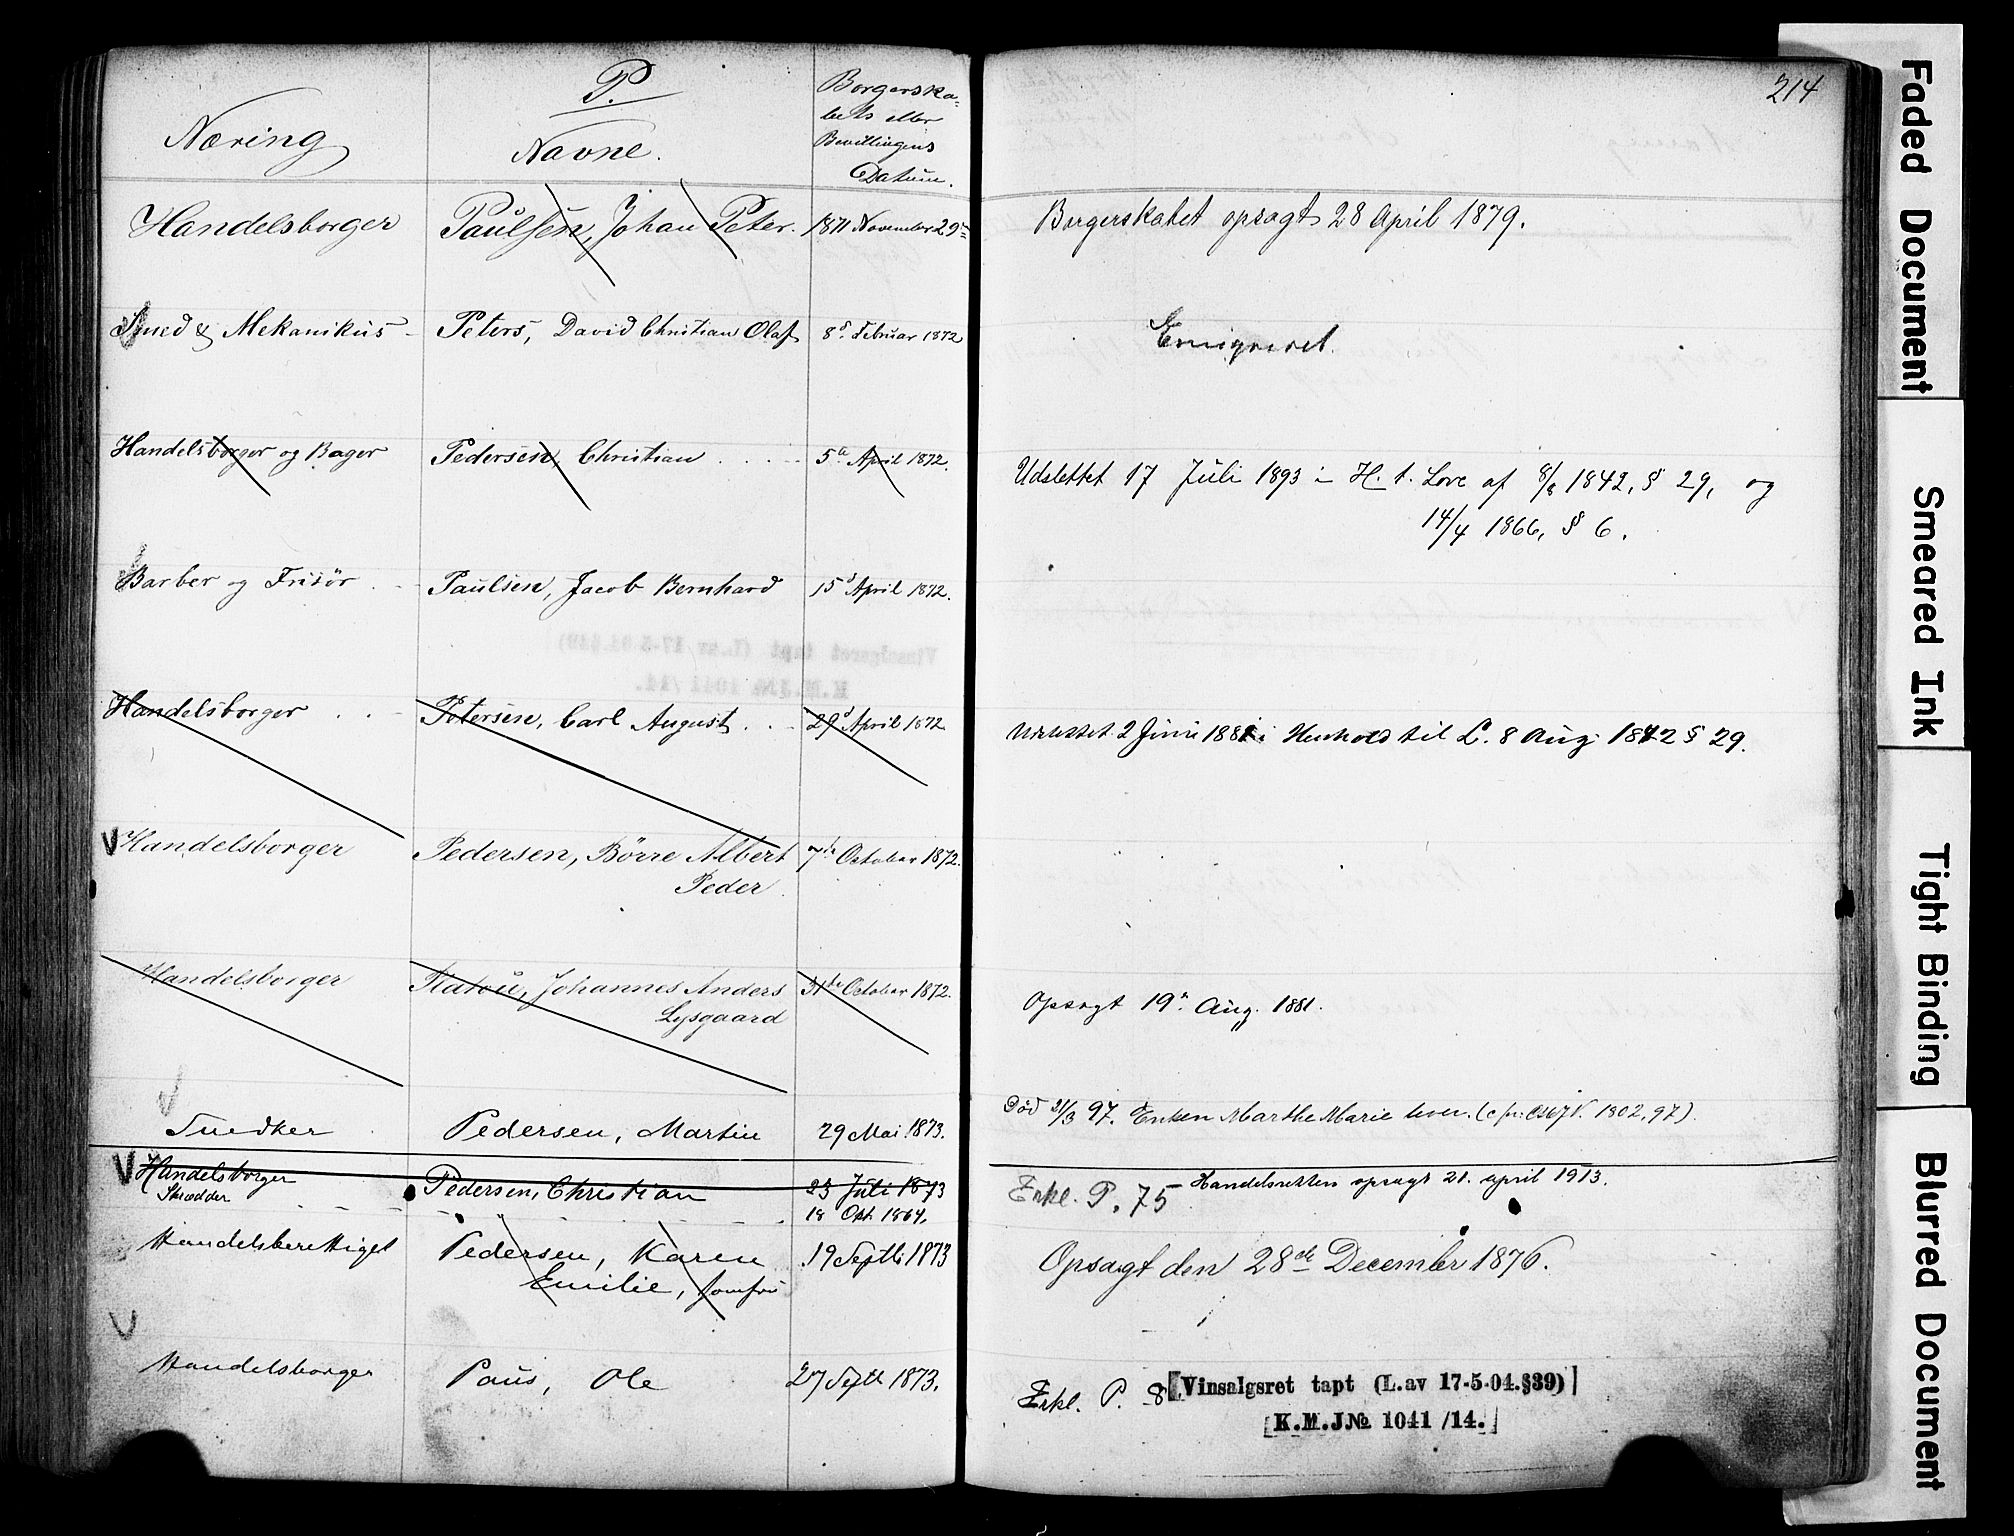 P.
Næring
Navne.
Borgerska-
bets eller
Bevillingens
Datum.
214
Handelsborger Paulsen, Johan Peter. 1871 November 29de Borgerskabet opsagt 28 April 1879.
Smed & Mekanikus - Peters, David Christian Olaf 8de Februar 1872 Emigreret.
Handelsborger og Bager Pedersen, Christian 5te April 1872. Udslettet 17 Juli 1893 i H. t. Love af 8/8 1842, § 29, og
14/4 1866, § 6.
Barber og Frisör Paulsen, Jacob Bernhard 15d April 1872.
Handelsborger Petersen, Carl August 29d April 1872 Udslettet 2 Juni 1881 i Henhold til L. 8 Aug 1842 § 29.
Handelsborger Pedersen, Börre Albert 7de October 1872.
Peder
Handelsborger Platou, Johannes Anders 31te October 1872. Opsagt 19n Aug. 1881.
Lysgaard
Snedker Pedersen, Martin 29 Mai 1873. Död 21/3 97. Enken Marthe Marie lever. 1802, 97).
Handelsborger Pedersen, Christian 23 Juli 1873 Erkl. P. 75 Handelsretten opsagt 21. april 1913.
Skrædder 18 Okt. 1864.
Handelsberettiget Pedersen, Karen 19 Septb 1873 Opsagt den 28de December 1876.
Emilie, Jomfru
Handelsborger Paus, Ole 27 Septb 1873. Erkl. P. 8 [Vinsalgsret tapt (L.av 17-5-04.§39)]
[K.M.J№ 1041 /14.]
Faded Document
Smeared Ink
Tight Binding
Blurred Document